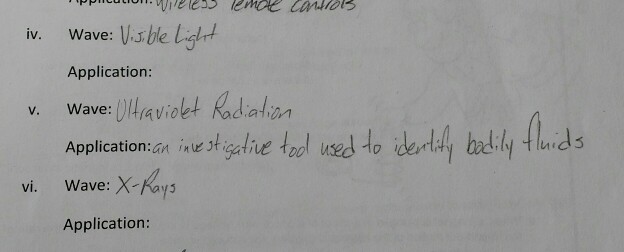 Application: Wireless remote controls
iv. Wave: Visible Light
Application:
v. Wave: Ultraviolet Radiation
Application: an investigative tool used to identify bodily fluids
vi. Wave: X-Rays
Application: